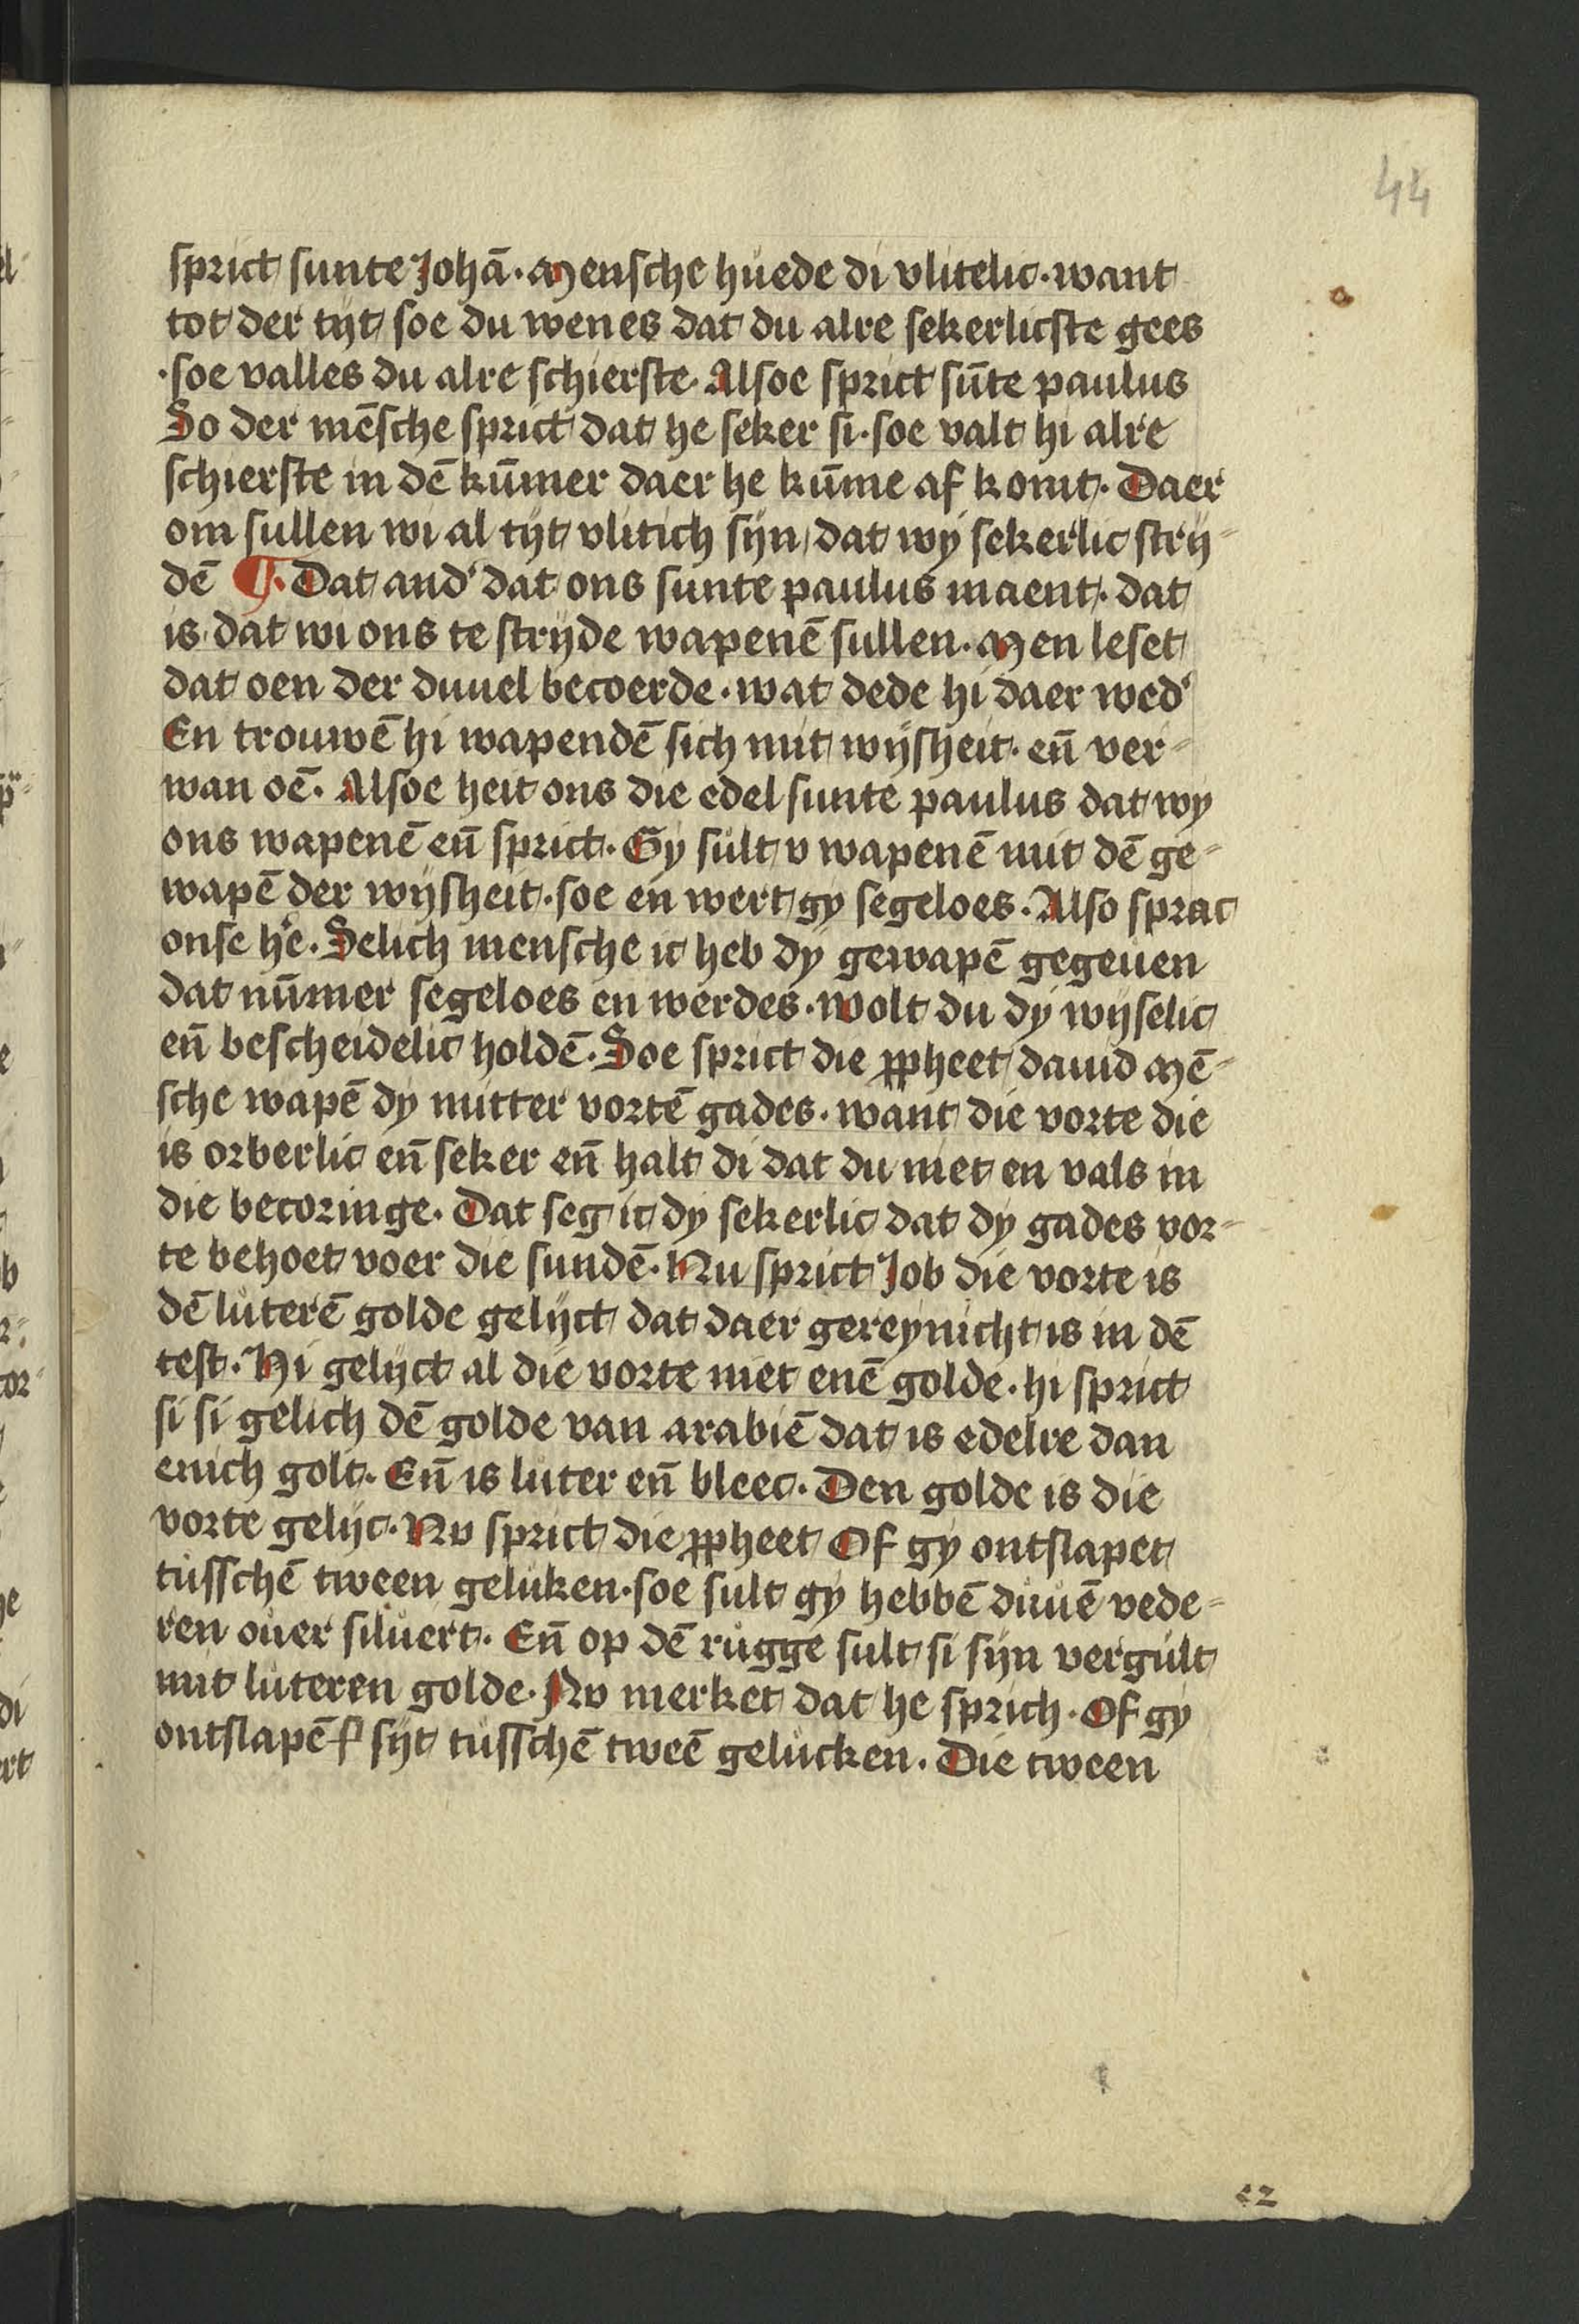 44
sprict sunte Johā. Mensche huede di vlitelic. want
tot der tijt soe du wenes dat du alre sekerlicste gees
.soe valles du alre schierste. Alsoe sprict sūte paulus
So der mēsche sprict dat he seker si. soe valt hi alre
schierste in dē kūmer daer he kūme af komt. Daer
om sullen wi al tijt vlitich sijn dat wy sekerlic strij-
dē ¶. Dat and' dat ons sunte paulus maent. dat
is dat wi ons te stryde wapenē sullen. Men leset
dat oen der duuel becoerde. wat dede hi daer wed'
En trouwē hi wapendē sich mit wijsheit. eñ ver-
wan oē. Alsoe heit ons die edel sunte paulus dat wy
ons wapenē eñ sprict. Gy sult v wapenē mit dē ge-
wapē der wijsheit. soe en wert gy segeloes. Also sprac
onse h'e. Selich mensche ic heb dy gewapē gegeuen
dat nūmer segeloes en werdes. wolt du dy wijselic
eñ bescheidelic holdē. Soe sprict die ꝓpheet dauid Mē-
sche wapē dy mitter vortē gades. want die vorte die
is orberlic eñ seker eñ halt di dat du niet en vals in
die becoringe. Dat seg ic dy sekerlic dat dy gades vor-
te behoet voer die sundē. Nu sprict Job die vorte is
dē luterē golde gelijct dat daer gereynicht is in dē
test. Hi gelijct al die vorte niet enē golde. hi sprict
si si gelich dē golde van arabiē dat is edelre dan
enich golt. Eñ is luter eñ bleec. Den golde is die
vorte gelijc. Nv sprict die ꝓpheet Of gy ontslapet
tusschē tween geluken. soe sult gy hebbē duuē vede-
ren ouer siluert. Eñ op dē rugge sult si sijn vergult
mit luteren golde. Nv merket dat he sprich. Of gy
ontslapē sijt tusschē tweē gelucken. Die tween